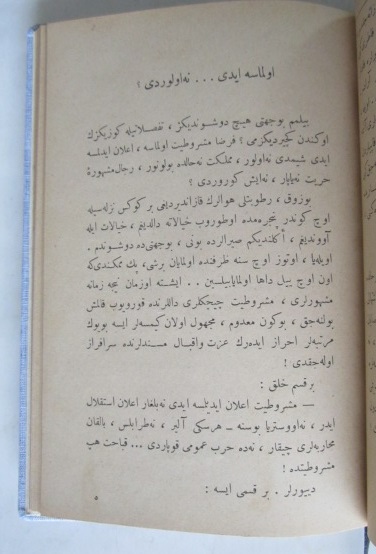 اولماسه ایدی . . . نه‌اولوردی ؟
بیلمم بوجهتی هیچ دوشوندیكز ، تفصلاتیله كوزیكزك
اوكندن كچیردیكزمی ؟ فرضا مشروطیت اولماسه ، اعلان ایدلسه
ایدی شیمدی نه‌اولور ، مملكت نه‌حالده بولونور ، رجال‌مشهورۀ
حریت نه‌یاپار ، نه‌ایش كوروردی ؟
بوزوق ، رطوبتلی هوالرك قازاندیردیغی بر كوكس نزله‌سیله
اوچ كوندر پنجره‌مده اوطوروب خیالاته دالدیغم ، خیالات ایله
آووندیغم ، اكلندیكم صیرالرده بونی ، بوجهتی‌ده دوشوندم .
اویله‌یا ، اوتوز اوچ سنه ظرفنده اولمایان برشی ، پك ممكندی‌كه
اون اوچ ییل داها اولمایابیلسین . . ایشته اوزمان نیجه زمانه
مشهورلری ، مشروطیت چیچكلری داللرنده قوروبوب قالمش
بولنه‌جق ، بوكون معدوم ، مجهول اولان كیمسه‌لر ایسه بویوك
مرتبه‌لر احراز ایده‌رك عزت واقبال مسندلرنده سرافراز
اوله‌جقدی !
برقسم خلق :
— مشروطیت اعلان ایدیلمسه ایدی نه‌بلغار اعلان استقلال
ایدر ، نه‌اووستریا بوسنه — هرسكی آلیر ، نه‌طرابلس ، بالقان
محاربه‌لری چیقار ، نه‌ده حرب عمومی قوپاردی ... قباحت هپ
مشروطیتده !
دییورلر . بر قسمی ایسه :
٥